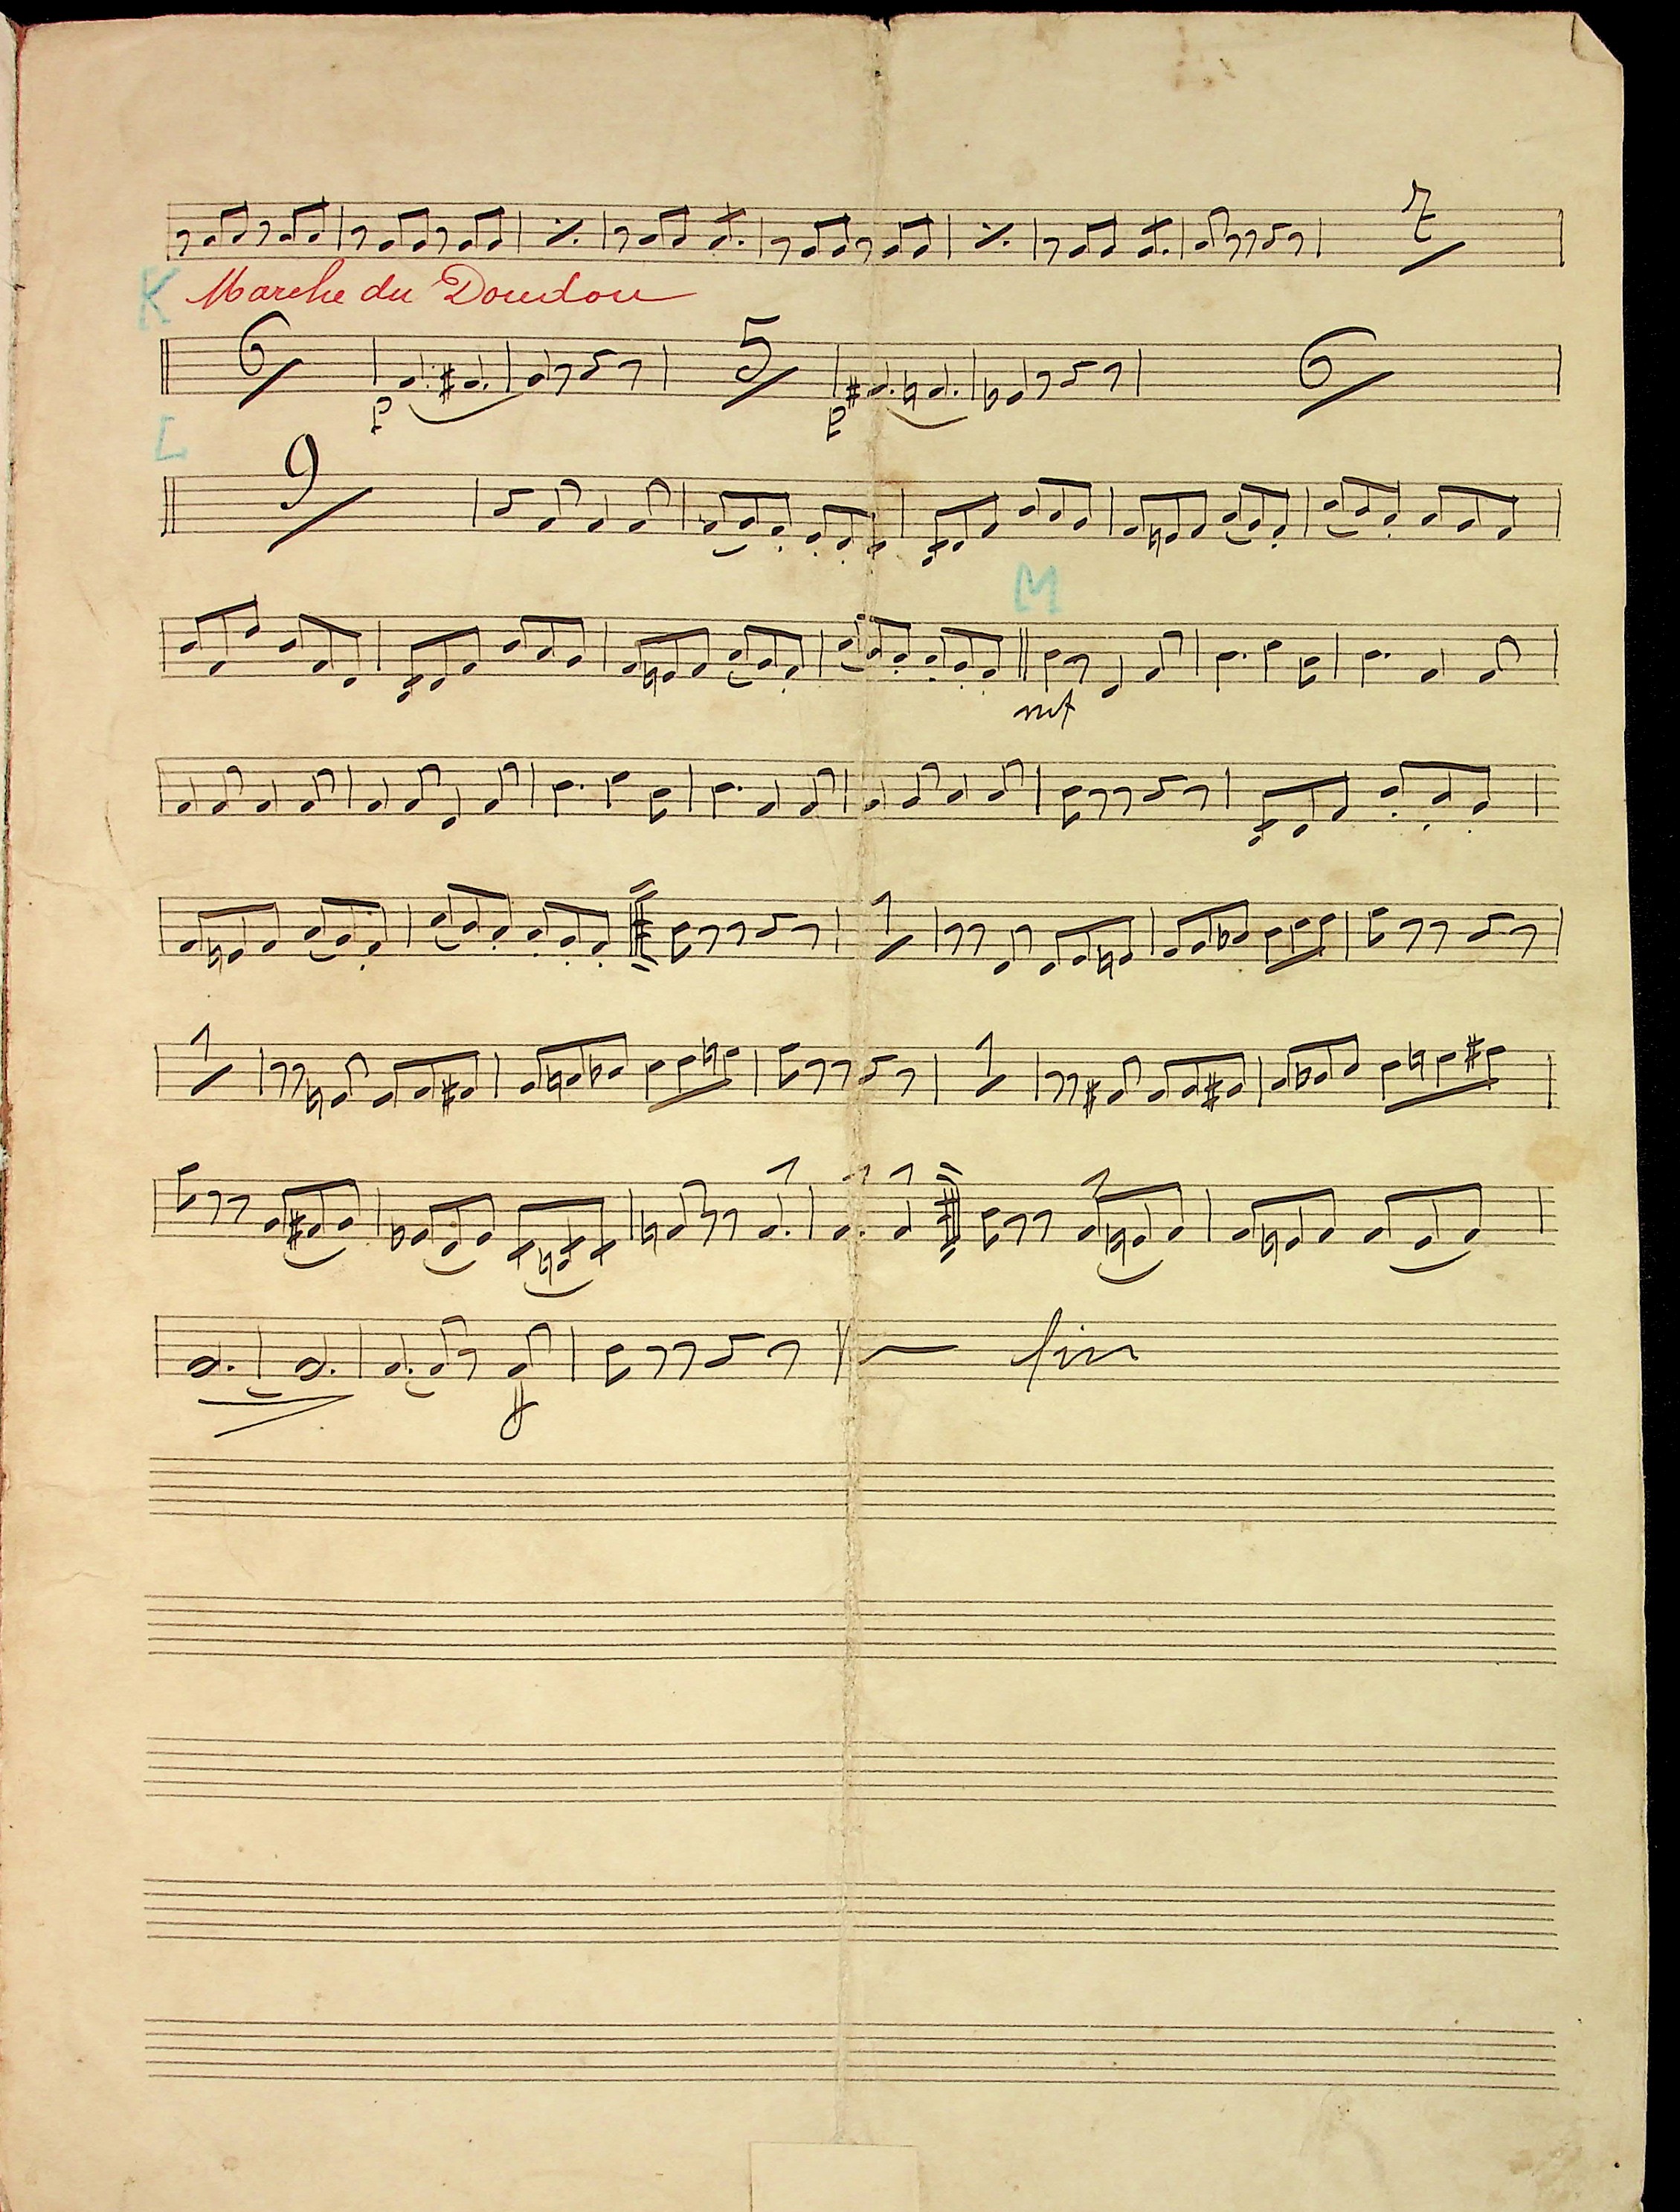 7
K Marche du Doudou
6 5 6
p p
L
9
M
mf
1
1 1
f
fin